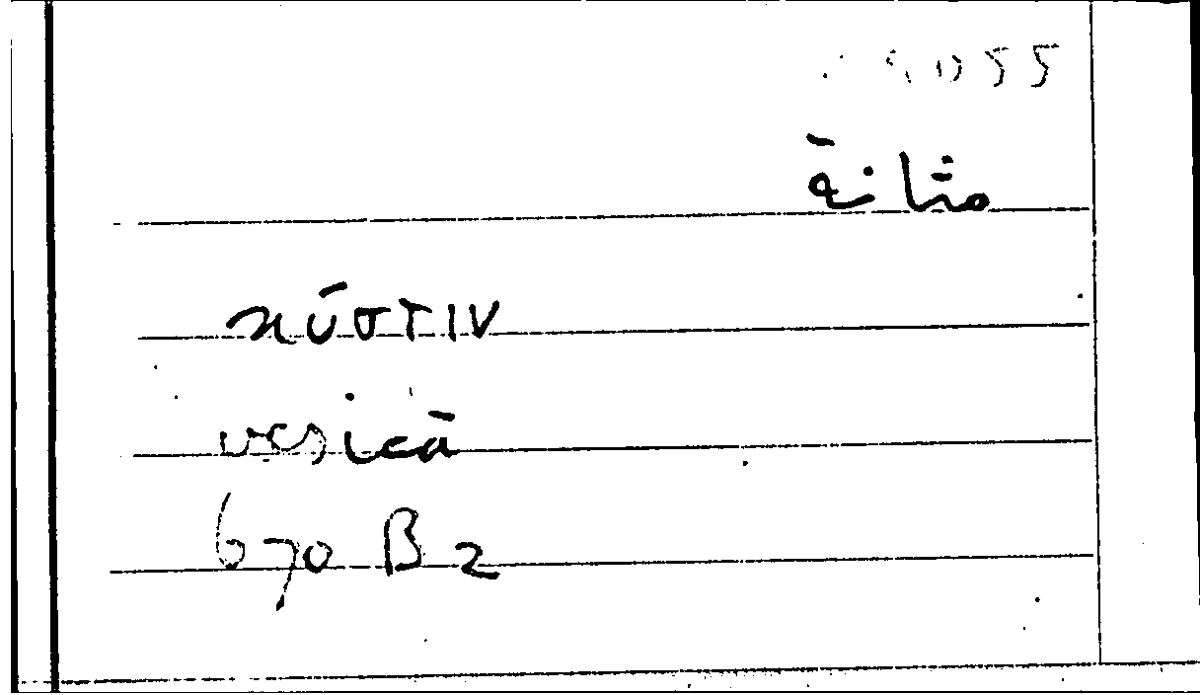 مثانة
κύστιν
vesicā
670 B 2